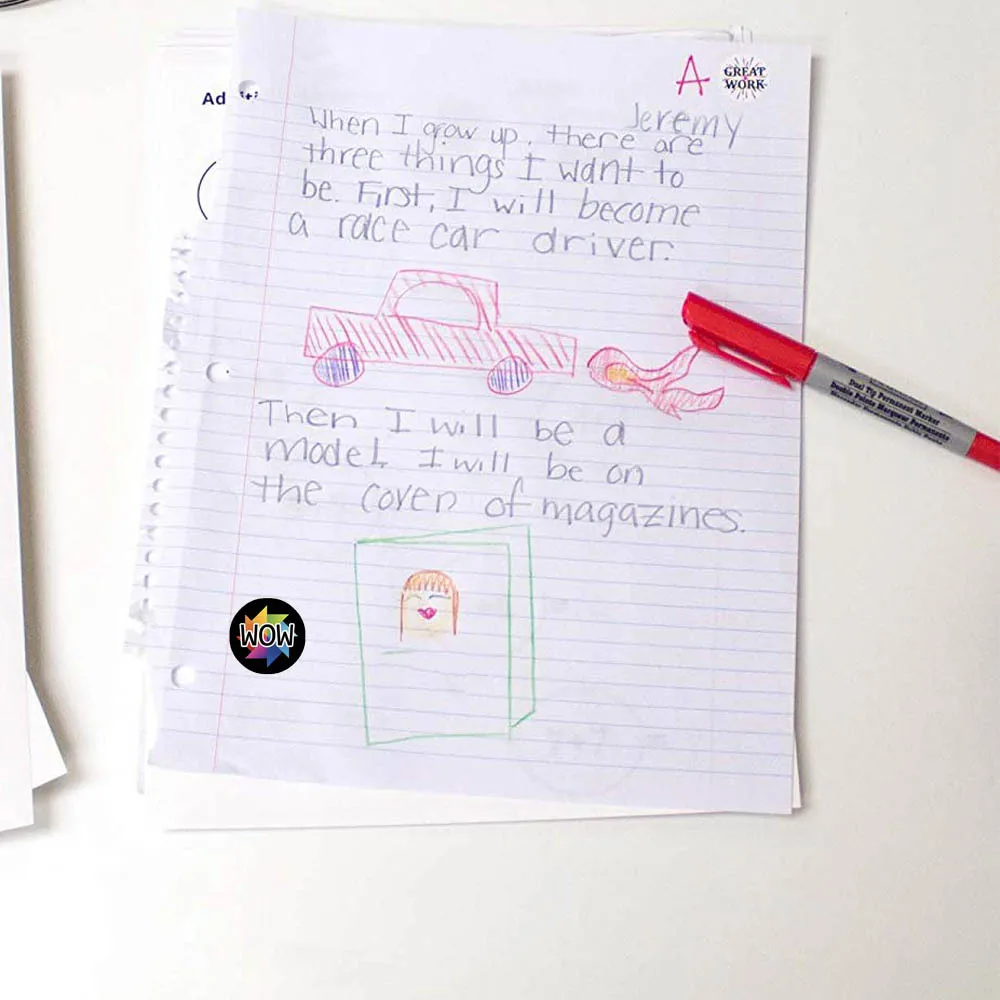 A
GREAT
WORK
Jeremy
Ad
When I grow up, there are
three things I want to
be. First, I will become
a race car driver.
Then I will be a
model, I will, be on
the cover of magazines.
WOW
Dual Tip Permanent Marker
Double Pointe Marqueur Permanente